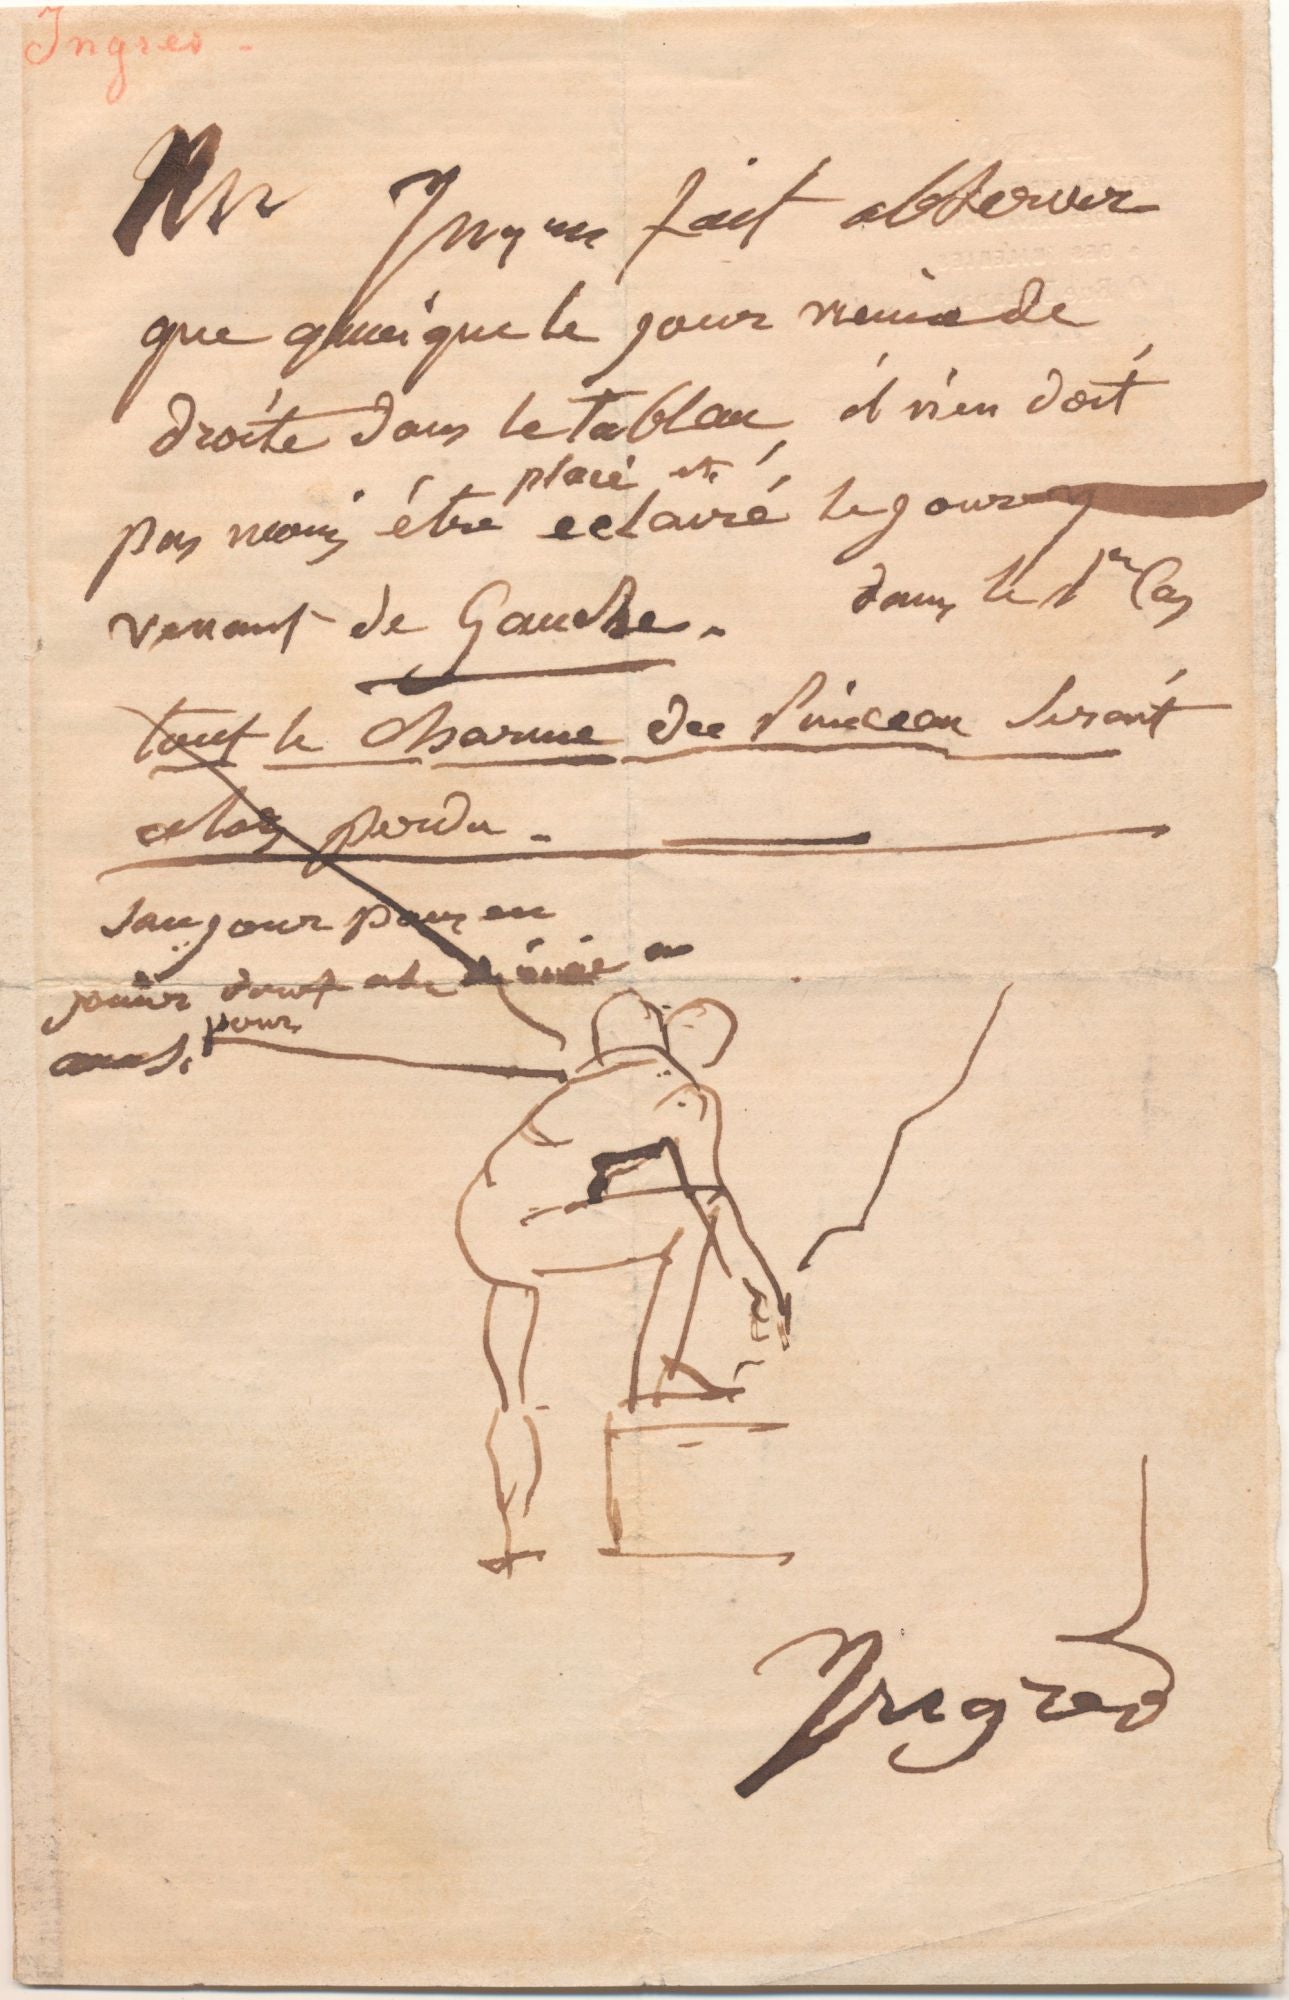 Ingres -
Mr Ingres fait observer
que quoique le jour vienne de
droite dans le tableau, il n'en doit
placé et
pas moins être eclairé le jour
venant de Gauche.
dans le 1er Cas
tout le charme du Pinceau serait
alors perdu.
jour
pour
Ingres